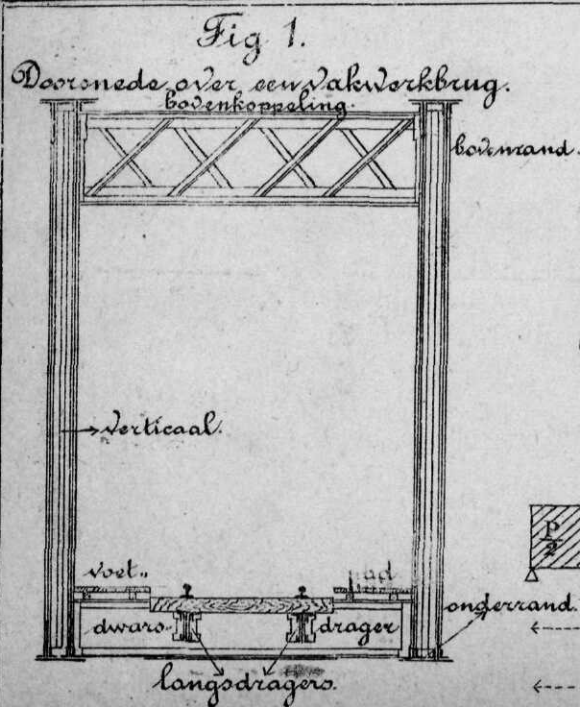 Fig 1.
Doorsnede over een Vakwerkbrug.
bovenkoppeling.
bovenrand.
Verticaal.
P
2
voet..
pad
onderrand.
dwars
drager
langsdragers.